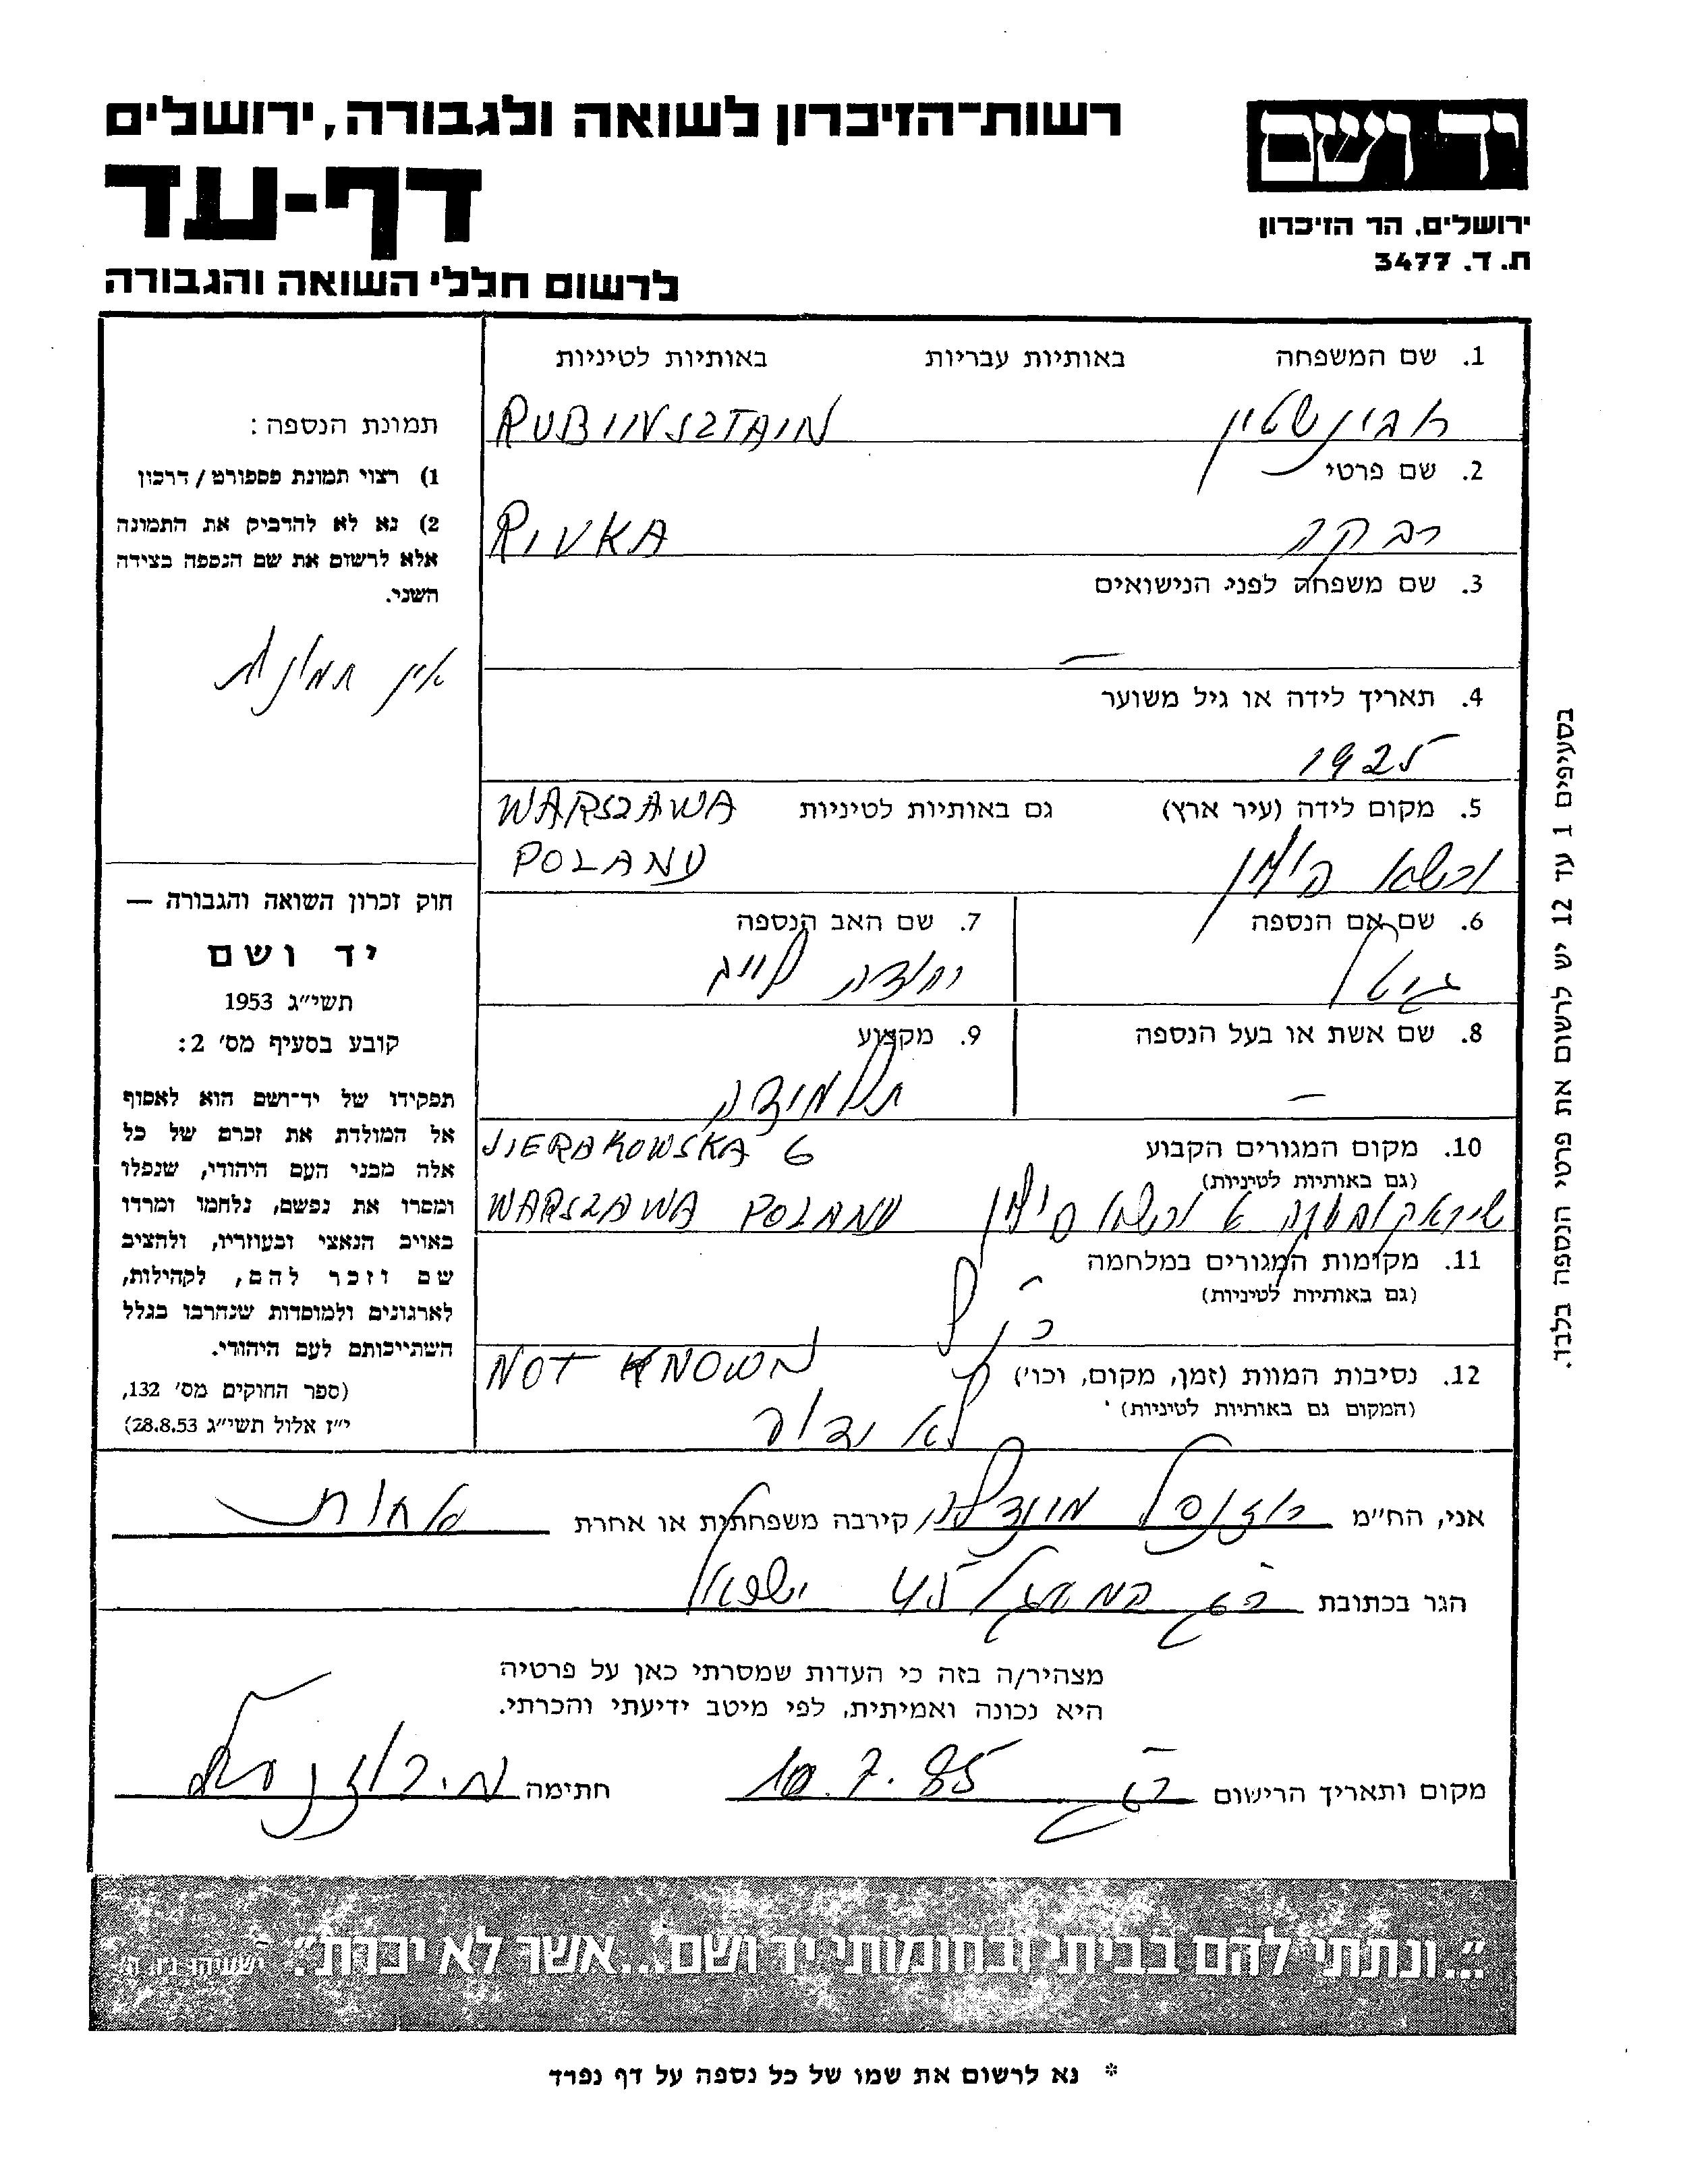 יד ושם
ירושלים, הר הזיכרון
ת. ד. 3477
רשות־הזיכרון לשואה ולגבורה, ירושלים
דף-עד
לרשום חללי השואה והגבורה
1. שם המשפחה באותיות עבריות באותיות לטיניות
רובינשטיין RUBINSZTAIN
2. שם פרטי
רבקה RIVKA
3. שם משפחה לפני הנישואים
—
4. תאריך לידה או גיל משוער
1925
5. מקום לידה (עיר ארץ) גם באותיות לטיניות WARSZAWA
ורשא פולין POLAND
6. שם אם הנספה
גיטל
7. שם האב הנספה
יהודה לייב
8. שם אשת או בעל הנספה
—
9. מקצוע
תלמידה
10. מקום המגורים הקבוע SIERAKOWSKA 6
(גם באותיות לטיניות)
שיראקובסקה 6 ורשא פולין WARSZAWA POLAND
11. מקומות המגורים במלחמה
(גם באותיות לטיניות)
כנ"ל
12. נסיבות המוות (זמן, מקום, וכו') NOT KNOWN
(המקום גם באותיות לטיניות)
לא ידוע
תמונת הנספה:
1) רצוי תמונת פספורט / דרכון
2) נא לא להדביק את התמונה
אלא לרשום את שם הנספה בצידה
השני.
אין תמונות
חוק זכרון השואה והגבורה —
יד ושם
תשי״ג 1953
קובע בסעיף מס׳ 2:
תפקידו של יד־ושם הוא לאסוף
אל המולדת את זכרם של כל
אלה מבני העם היהודי, שנפלו
ומסרו את נפשם, נלחמו ומרדו
באויב הנאצי ובעוזריו, ולהציב
שם וזכר להם, לקהילות,
לארגונים ולמוסדות שנהרבו בגלל
השתייכותם לעם היהודי.
(ספר החוקים מס׳ 132,
י״ז אלול תשי״ג 28.8.53)
בסעיפים 1 עד 12 יש לרשום את פרטי הנספה בלבד.
אני, הח״מ רוזנפלד קירבה משפחתית או אחרת אחות
הגר בכתובת 45 ישראל
מצהיר/ה בזה כי העדות שמסרתי כאן על פרטיה
היא נכונה ואמיתית, לפי מיטב ידיעתי והכרתי.
מקום ותאריך הרישום 10.7.85 חתימה
״...ונתתי להם בביתי ובחומותי יד ושם...אשר לא יכרת״. ישעיהו נ״ו, ה׳
* נא לרשום את שמו של כל נספה על דף נפרד